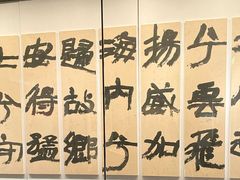 兮雲飛
揚威加
海内兮
歸故鄉
安得猛
士兮守